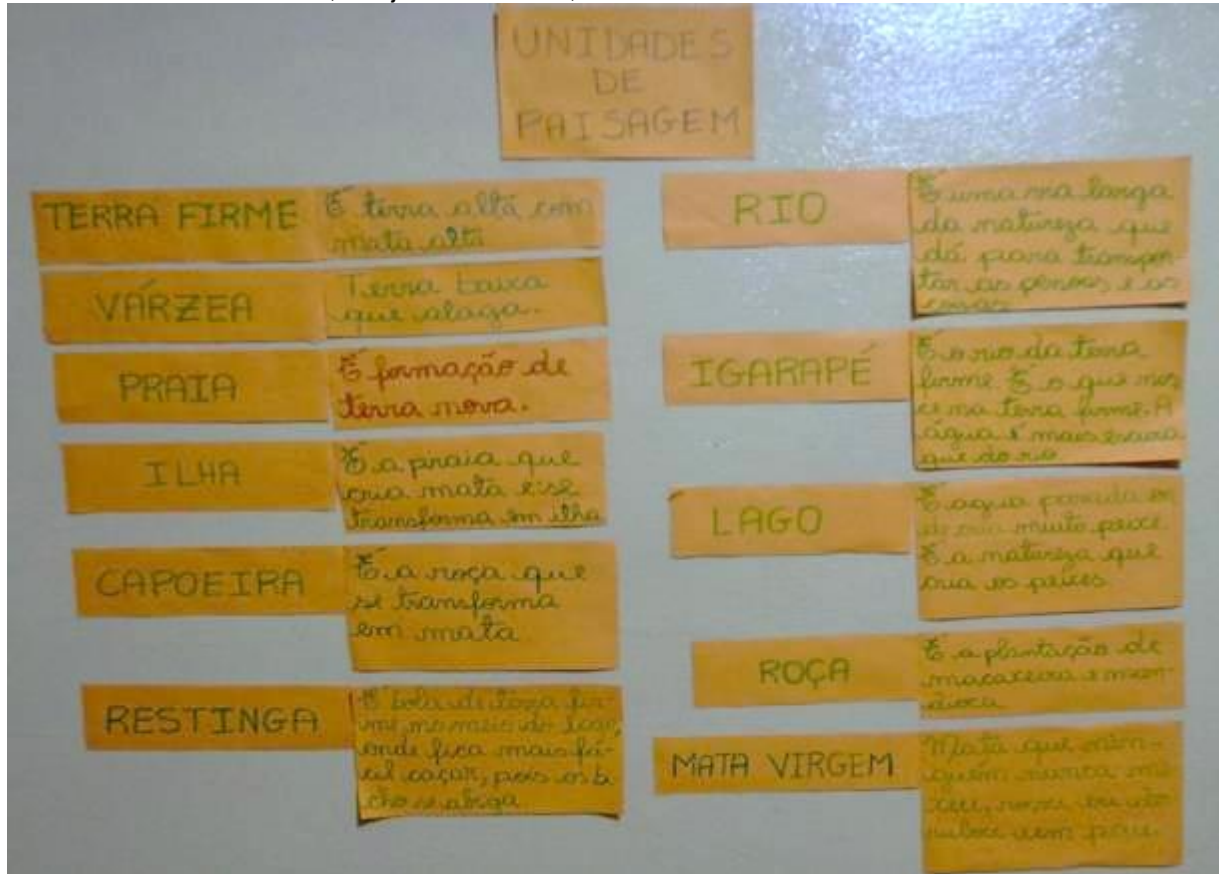 UNIDADES
DE
PAISAGEM
TERRA FIRME
É terra alta com
mata alta
VÁRZEA
Terra baixa
que alaga.
PRAIA
É formação de
terra nova.
ILHA
É a praia que
cria mata e se
transforma em ilha
CAPOEIRA
É a roça que
se transforma
em mata
RESTINGA
É bola de terra fir-
me, no meio do lago,
onde fica mais fá-
cil caçar, pois os bi
cho se abriga
RIO
É uma via larga
da natureza que
dá para transpor-
tar as pessoas e as
coisas
IGARAPÉ
É o rio da terra
firme. É o que nas
ce na terra firme. A
água é mais escura
que do rio
LAGO
É agua parada on
de cria muito peixe
É a natureza que
cria os peixes
ROÇA
É a plantação de
macaxeira e man-
dioca
MATA VIRGEM
Mata que nin-
guém nunca me
xeu,